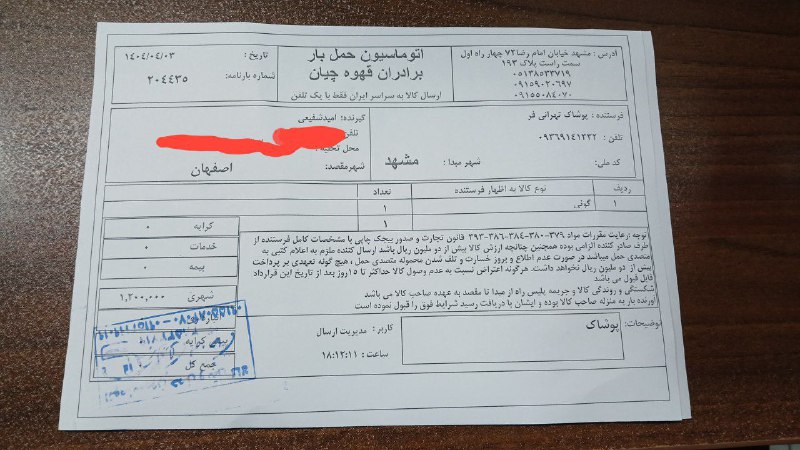 آدرس : مشهد خیابان امام رضا۷۲ چهار راه اول
سمت راست پلاک ۱۹۳
۰۵۱۳۸۵۳۳۷۱۹
۰۹۱۵۹۰۲۰۶۹۷
۰۹۱۵۵۰۸۴۰۷۰
اتوماسیون حمل بار
برادران قهوه چیان
ارسال کالا به سراسر ایران فقط با یک تلفن
تاریخ : ۱۴۰۴/۰۴/۰۳
شماره بارنامه: ۲۰۴۴۳۵
فرستنده : پوشاک تهرانی فر
تلفن : ۰۹۳۶۹۱۴۱۳۳۲
کد ملی: شهر مبدا : مشهد
گیرنده: امیدشفیعی
تلفن
محل تخلیه :
شهرمقصد: اصفهان
ردیف نوع کالا به اظهار فرستنده تعداد
۱ گونی ۱
۱
توجه: رعایت مقررات مواد ۳۷۹-۳۸۰-۳۸۴-۳۸۶-۳۹۳ قانون تجارت و صدور بیجک چاپی با مشخصات کامل فرستنده از
طرف صادر کننده الزامی بوده همچنین چنانچه ارزش کالا بیش از دو ملیون ریال باشد ارسال کننده ملزم به اعلام کتبی به
متصدی حمل میباشد در صورت عدم اطلاع و بروز خسارت و تلف شدن محموله متصدی حمل ، هیچ گونه تعهدی بر پرداخت
بیش از دو ملیون ریال نخواهد داشت. هرگونه اعتراض نسبت به عدم وصول کالا حداکثر تا ۱۵روز بعد از تاریخ این قرارداد
قابل قبول می باشد
شکستگی و روندگی کالا و جریمه پلیس راه از مبدا تا مقصد به عهده صاحب کالا می باشد
آورنده بار به منزله صاحب کالا بوده و ایشان با دریافت رسید شرایط فوق را قبول نموده است
کرایه ۰
خدمات ۰
بیمه ۰
شهری ۱,۲۰۰,۰۰۰
کرایه
جمع کل
توضیحات: پوشاک
کاربر : مدیریت ارسال
ساعت : ۱۸:۱۲:۱۱